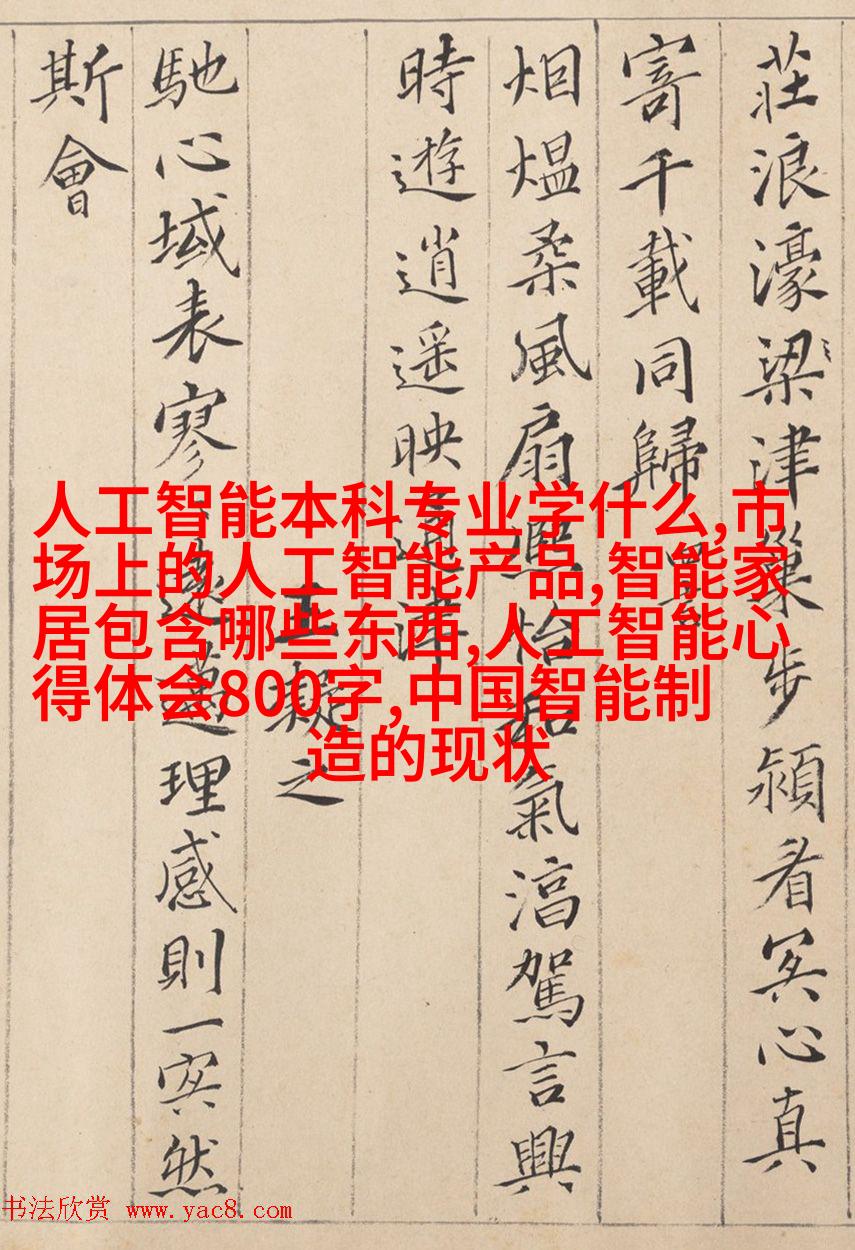 莊浪濠梁津巢步潁看冥心真
寄千載同歸
烟熅柔風扇熙怡和氣湻駕言興
時遊逍遥映通津
王凝之
馳心域表寥寥遠邁理感則一冥然
斯會
人工智能本科专业学什么,市
场上的人工智能产品,智能家
居包含哪些东西,人工智能心
得体会800字,中国智能制
造的现状
书法欣赏 www.yac8.com